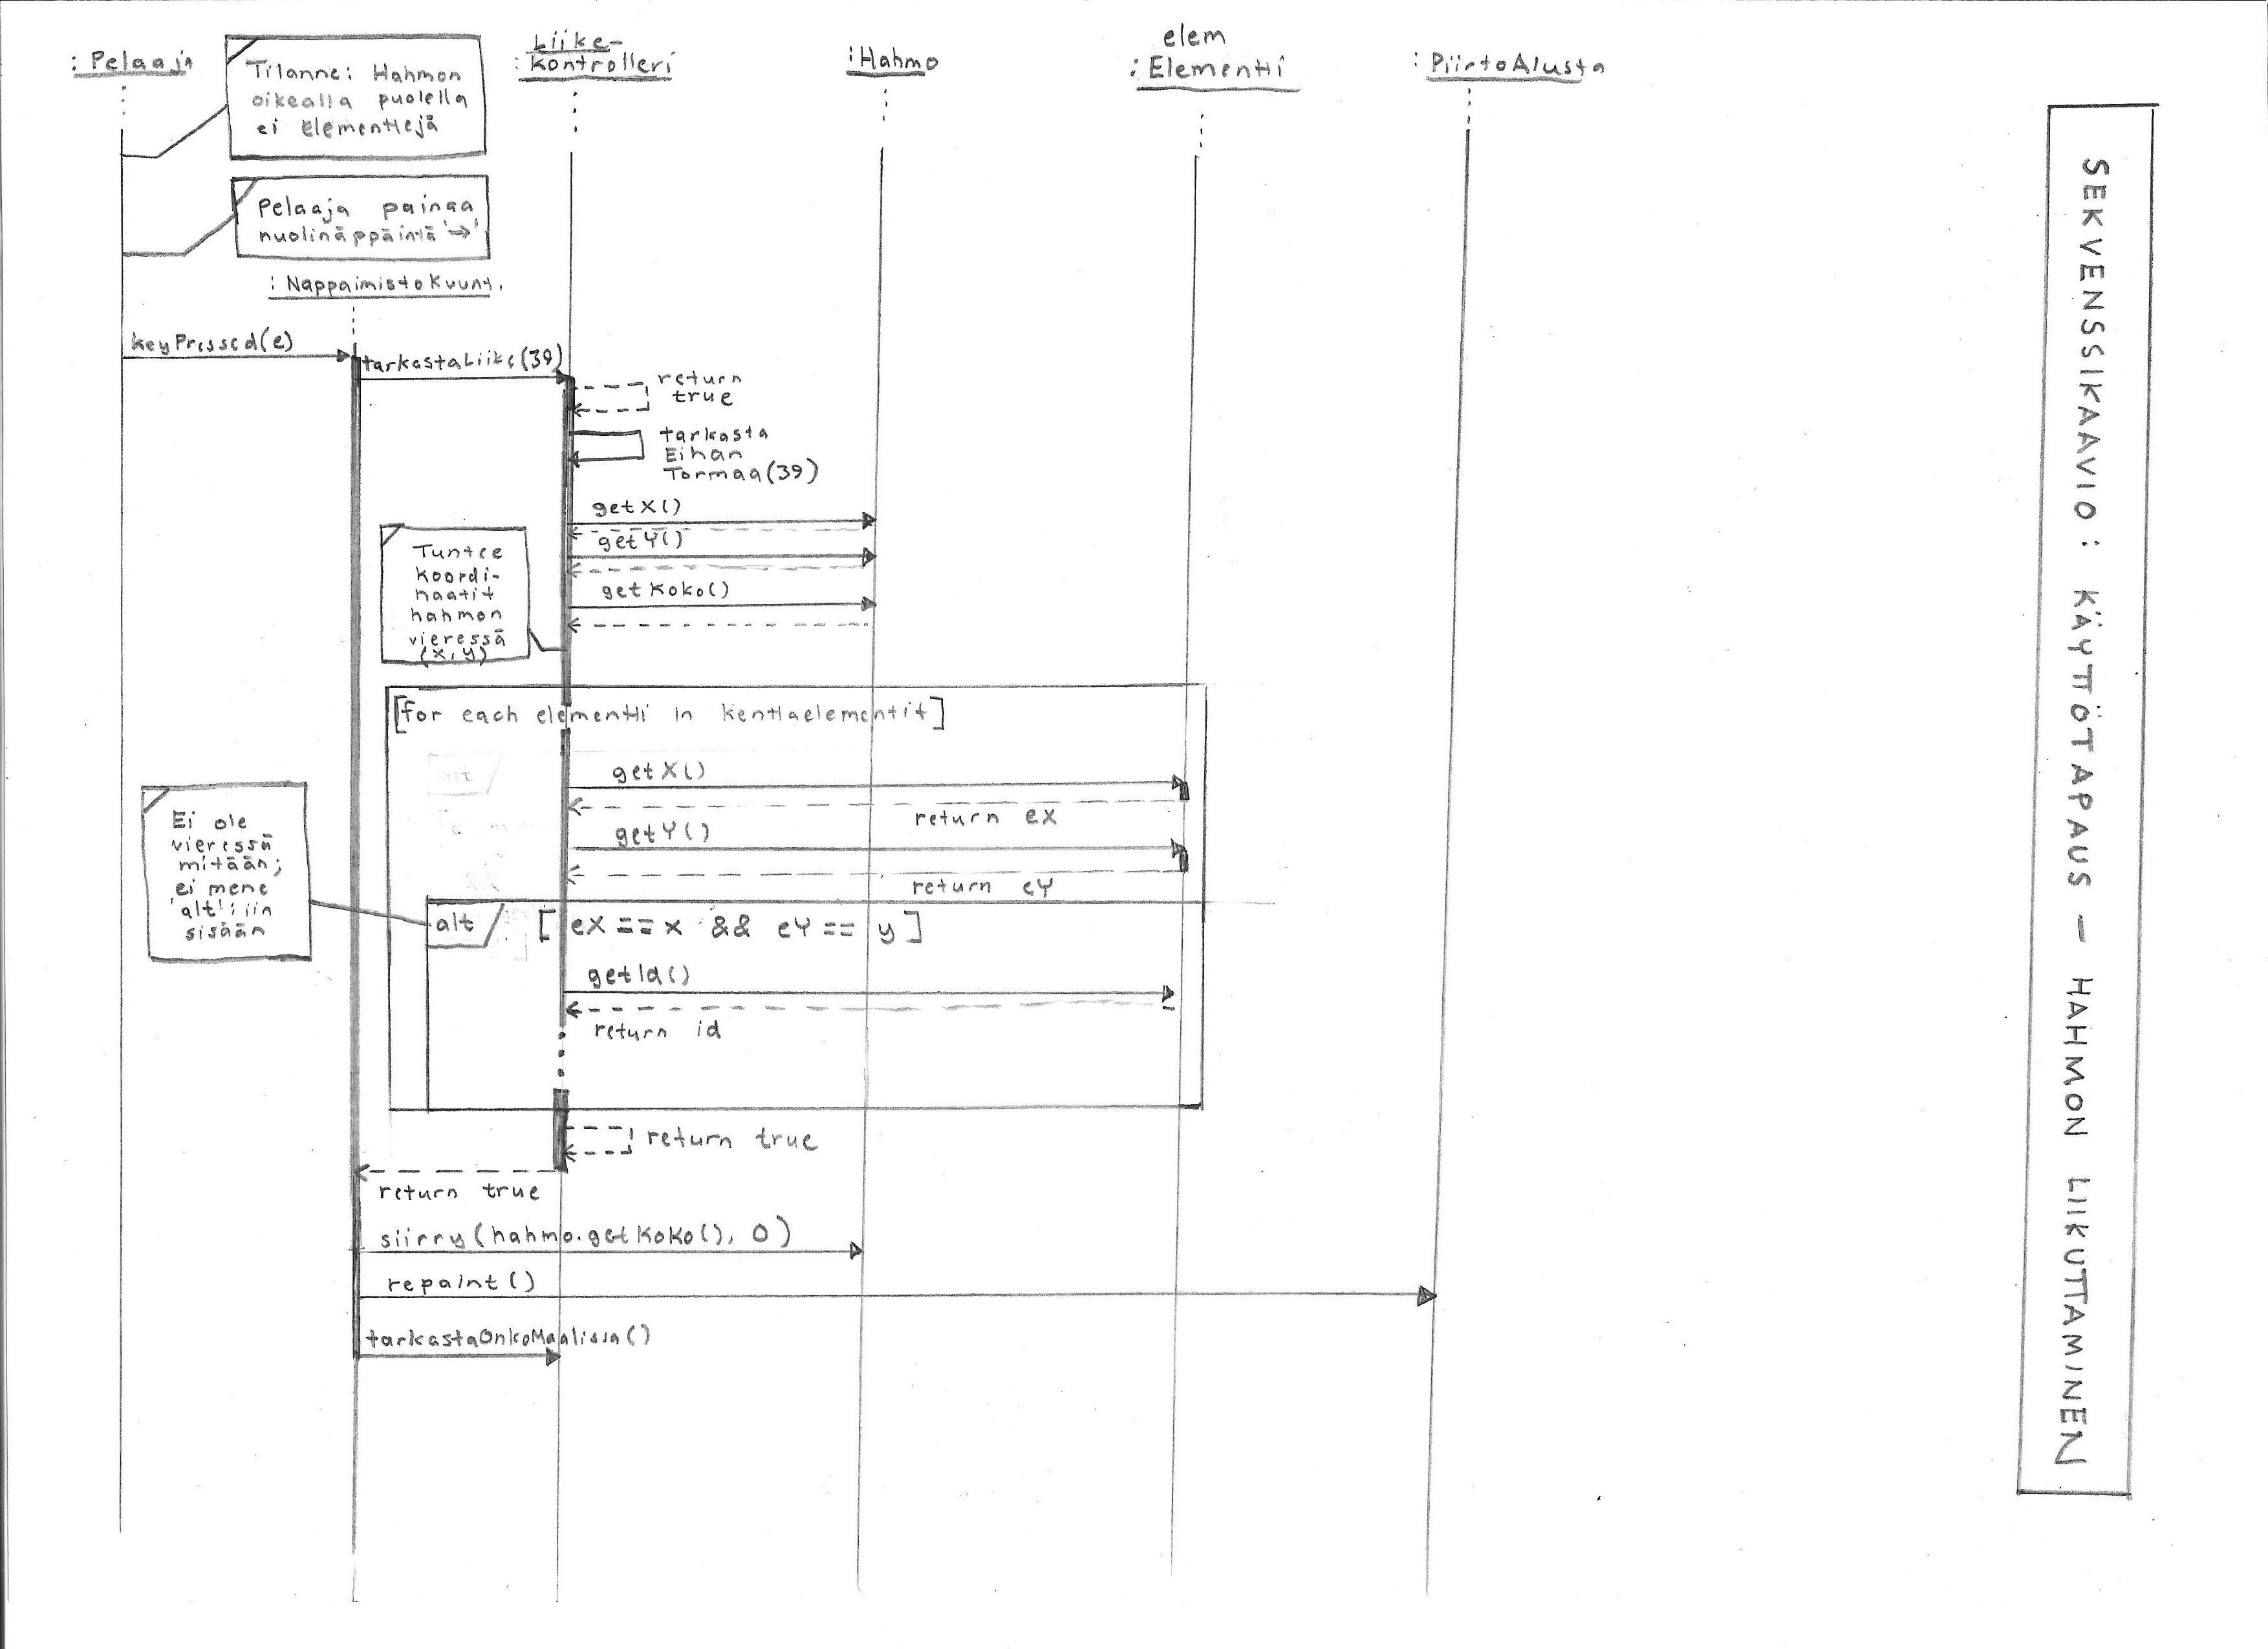 : Pelaaja
Tilanne: Hahmon
oikealla puolella
ei elementtejä
Liike-
: Kontrolleri
:Hahmo
elem
:Elementti
: PiirtoAlusta
Pelaaja painaa
nuolinäppäintä '→'
: NappaimistoKuunt.
keyPressed(e)
tarkastaLiike(39)
return
true
tarkasta
Eihan
Tormaa(39)
getX()
getY()
getKoko()
Tuntee
koordi-
naatit
hahmon
vieressä
(x, y)
[for each elementti in kenttaelementit]
getX()
return eX
getY()
return eY
Ei ole
vieressä
mitään;
ei mene
'alt':iin
sisään
alt
[ eX == x && eY == y ]
getId()
return id
return true
return true
siirry(hahmo.getKoko(), 0)
repaint()
tarkastaOnkoMaalissa()
SEKVENSSIKAAVIO: KÄYTTÖTAPAUS — HAHMON LIIKUTTAMINEN